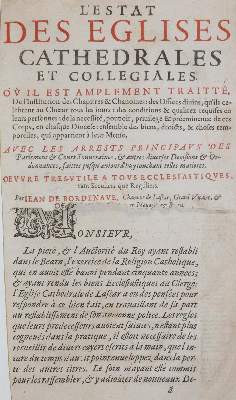 L'ESTAT
DES EGLISES
CATHEDRALES
ET COLLEGIALES.
OV IL EST AMPLEMENT TRAITTÉ,
De l'Institution des Chapitres & Chanoines: des Offices diuins, qu'ils ce-
lebrent au Chœur tous les iours: des conditions & qualitez requises en
leurs personnes: de la necessité, pouuoir, priuilege & préeminence de ces
Corps, en chasque Diocese: ensemble des biens, droicts, & choses tem-
porelles, qui appartient à leur Mense.
AVEC LES ARRESTS PRINCIPAVX DES
Parlemens & Cours Souueraines, & autres diuerses Decisions &
donnances, faites iusqu'auiourd'huy touchant telles matieres.
OEVVRE TRES-VTILE A TOVS ECCLESIASTIQVES,
tant Seculiers que Reguliers.
Par IEAN DE BORDENAVE, Chanoine de Lascar, Grand Vicaire, &
MONSIEVR,
La pieté, & l'Auctorité du Roy ayant restabli
dans le Bearn, l'exercice de la Religion Catholique,
qui en auoit esté banni pendant cinquante années;
& ayant rendu les biens Ecclesiastiques au Clergé:
l'Eglise Cathedrale de Lascar a eu des pensées pour
respondre à ce bien fait, en trauaillant de sa part
au restablissement de son ancienne police. Les regles
que leurs predecesseurs auoient suiuies, n'estant plus
cognues dans la pratique, il estoit necessaire de les
recueillir de diuers escrits à la main, que l'in-
iure du temps n'auoit point enuelopez dans la per-
te des autres titres. Le soin m'ayant esté commis
pour les rassembler, & y adiouter de nouueaux De-